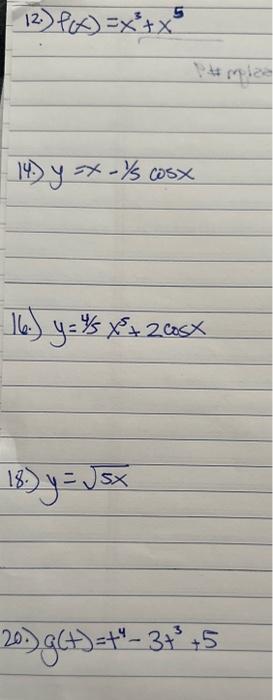 12.) f(x) = x³ + x⁵
14.) y = x - 1/5 cosx
16.) y = 4/5 x⁵ + 2cosx
18.) y = √5x
20.) g(t) = t⁴ - 3t³ + 5